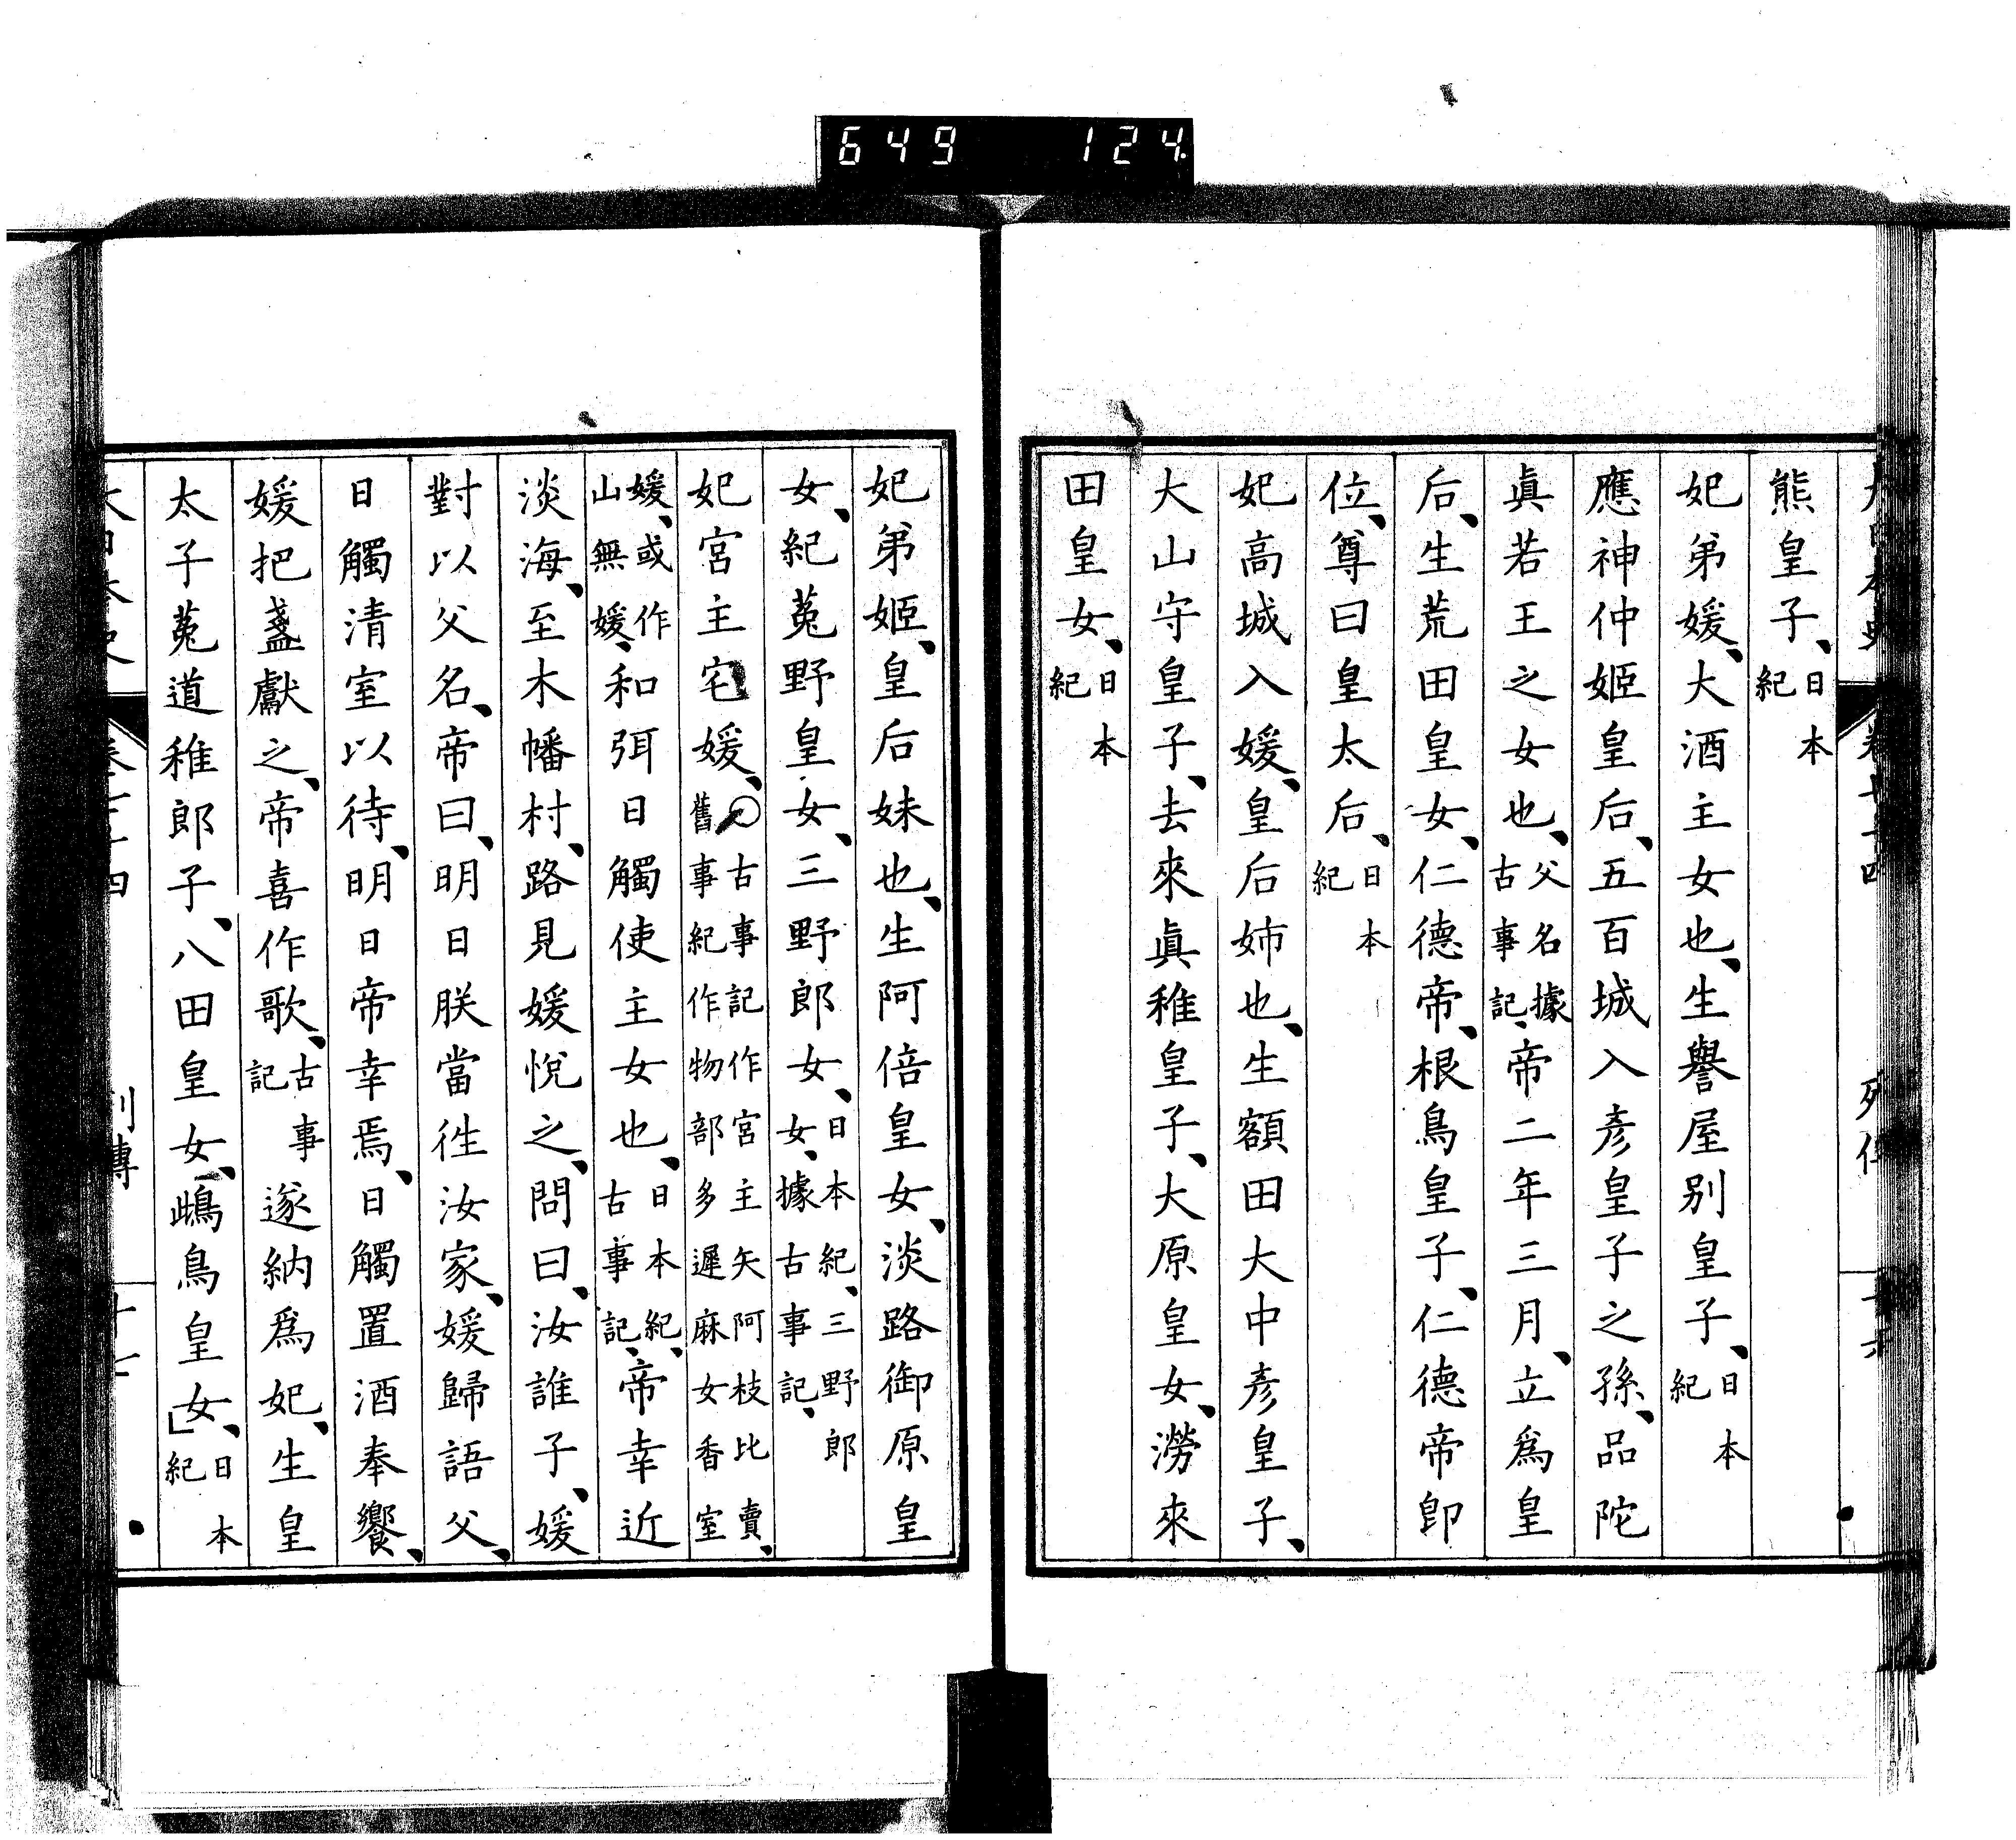 649 124
熊皇子、日本紀
妃弟媛、大酒主女也、生譽屋別皇子、日本紀
應神仲姬皇后、五百城入彥皇子之孫、品陀
眞若王之女也、父名據古事記、帝二年三月、立爲皇
后、生荒田皇女、仁德帝、根鳥皇子、仁德帝卽
位、尊曰皇太后、日本紀
妃高城入媛、皇后姉也、生額田大中彥皇子、
大山守皇子、去來眞稚皇子、大原皇女、澇來
田皇女、日本紀
妃弟姬、皇后妹也、生阿倍皇女、淡路御原皇
女、紀菟野皇女、三野郎女、日本紀、三野郎女、據古事記、
妃宮主宅媛、〇古事記作宮主矢阿枝比賣、舊事紀作物部多遲麻女香室
媛、或作山無媛、和弭日觸使主女也、日本紀、古事記、帝幸近
淡海、至木幡村、路見媛悅之、問曰、汝誰子、媛
對以父名、帝曰、明日朕當往汝家、媛歸語父、
日觸清室以待、明日帝幸焉、日觸置酒奉饗、
媛把盞獻之、帝喜作歌、古事記遂納爲妃、生皇
太子菟道稚郎子、八田皇女、鴟鳥皇女、」日本紀
卷七十四